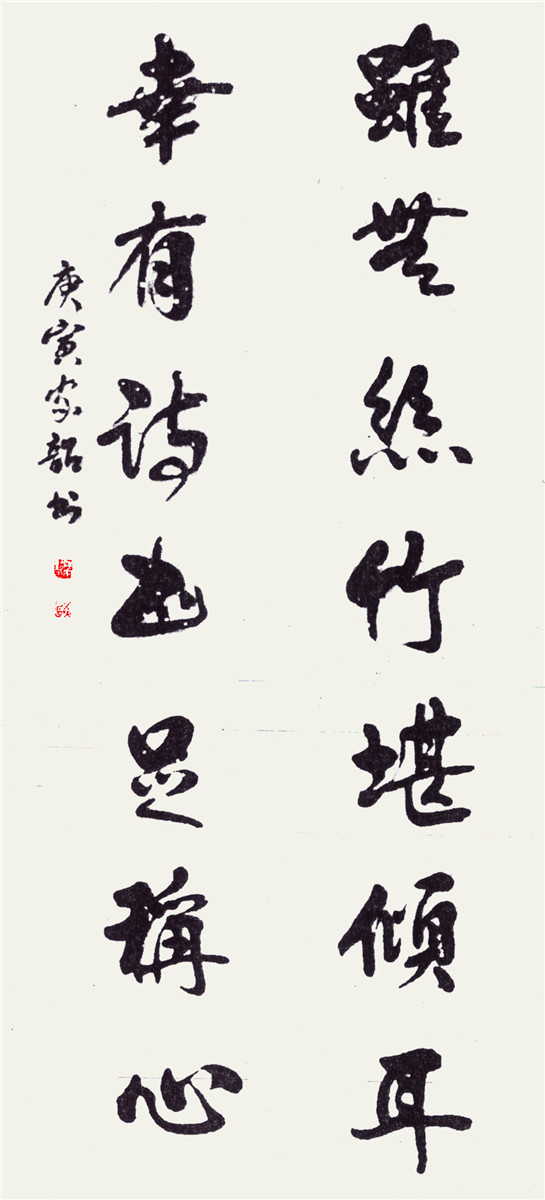 雖無絲竹堪傾耳
幸有詩書足稱心
庚寅家韶书